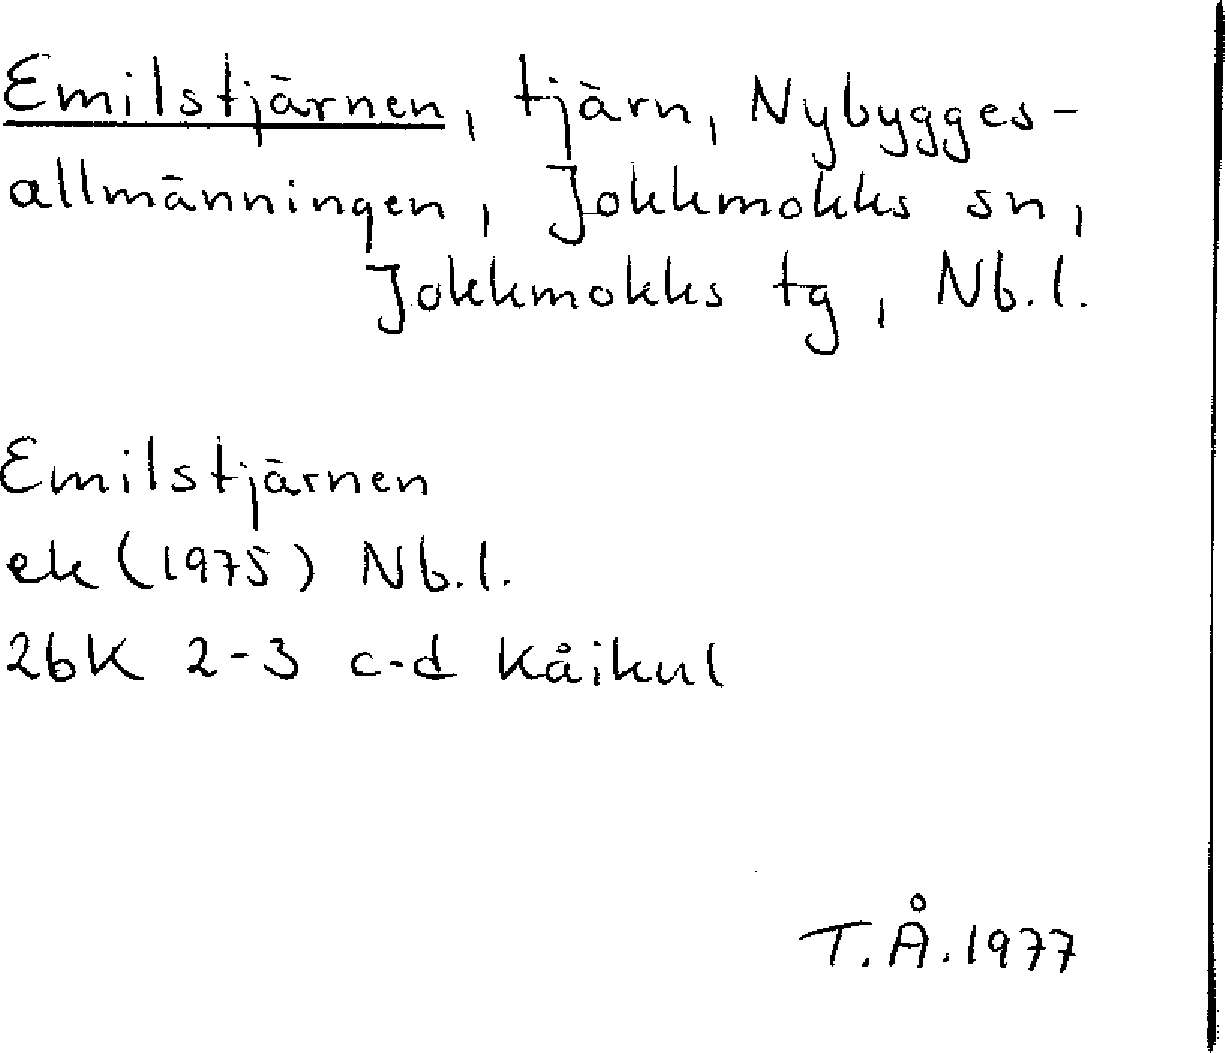 Emilstjärnen, tjärn, Nybygges-
allmänningen, Jokkmokks sn,
Jokkmokks tg, Nb.l.
Emilstjärnen
ek (1975) Nb.l.
26K 2-3 c-d Kåikul
T.Å.1977